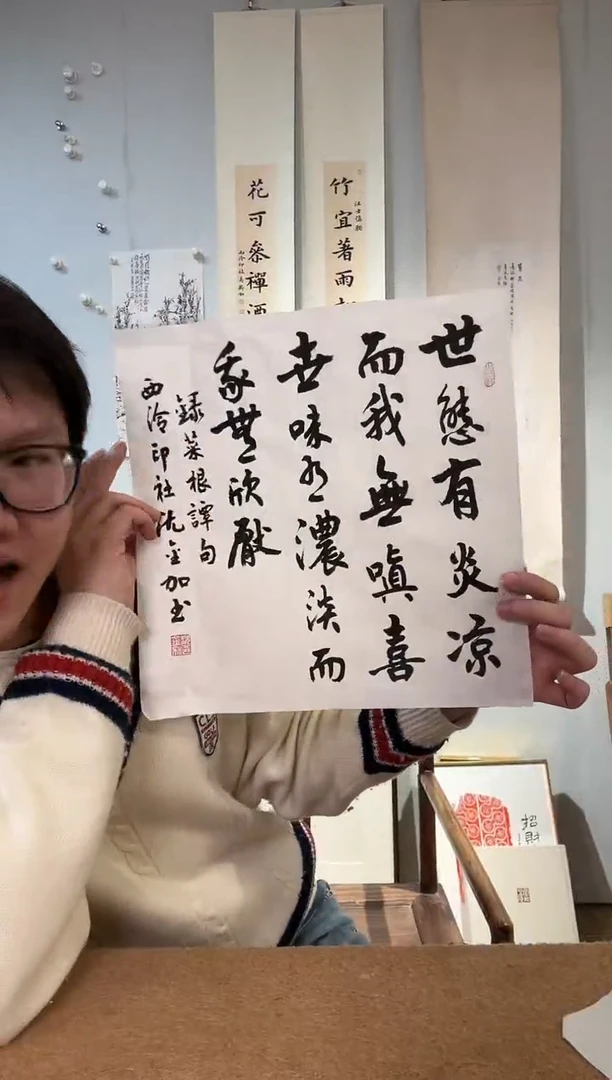 世態有炎凉
而我無嗔喜
世味有濃淡而
我無欣厭
錄菜根譚句
西泠印社沈金加书
竹宜著雨
花可參禪酒
招財